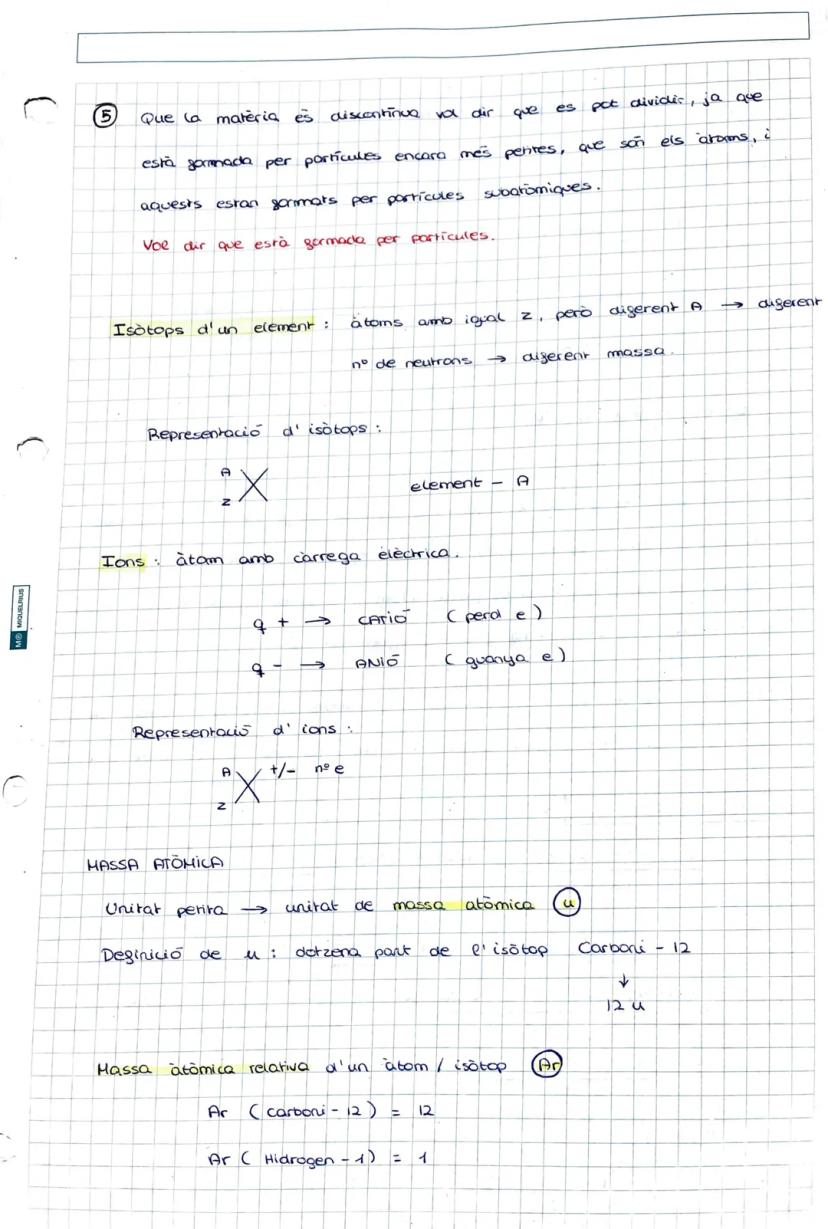 5 Que la matèria és discontínua vol dir que es pot dividir, ja que
està formada per partícules encara més petites, que són els àtoms, i
aquests estan formats per partícules subatòmiques.
Vol dir que està formada per partícules.
Isòtops d'un element : àtoms amb igual z, però diferent A → diferent
nº de neutrons → diferent massa.
Representació d'isòtops :
A
X element - A
z
Ions : àtom amb càrrega elèctrica.
q + → CATIÓ (perd e)
q - → ANIÓ (guanya e)
Representació d'ions :
A +/- nº e
X
z
MASSA ATÒMICA
Unitat petita → unitat de massa atòmica u
Definició de u : dotzena part de l'isòtop Carboni - 12
↓
12 u
Massa àtòmica relativa d'un àtom / isòtop Ar
Ar (carboni - 12) = 12
Ar (Hidrogen - 1) = 1
MR MIQUELRIUS